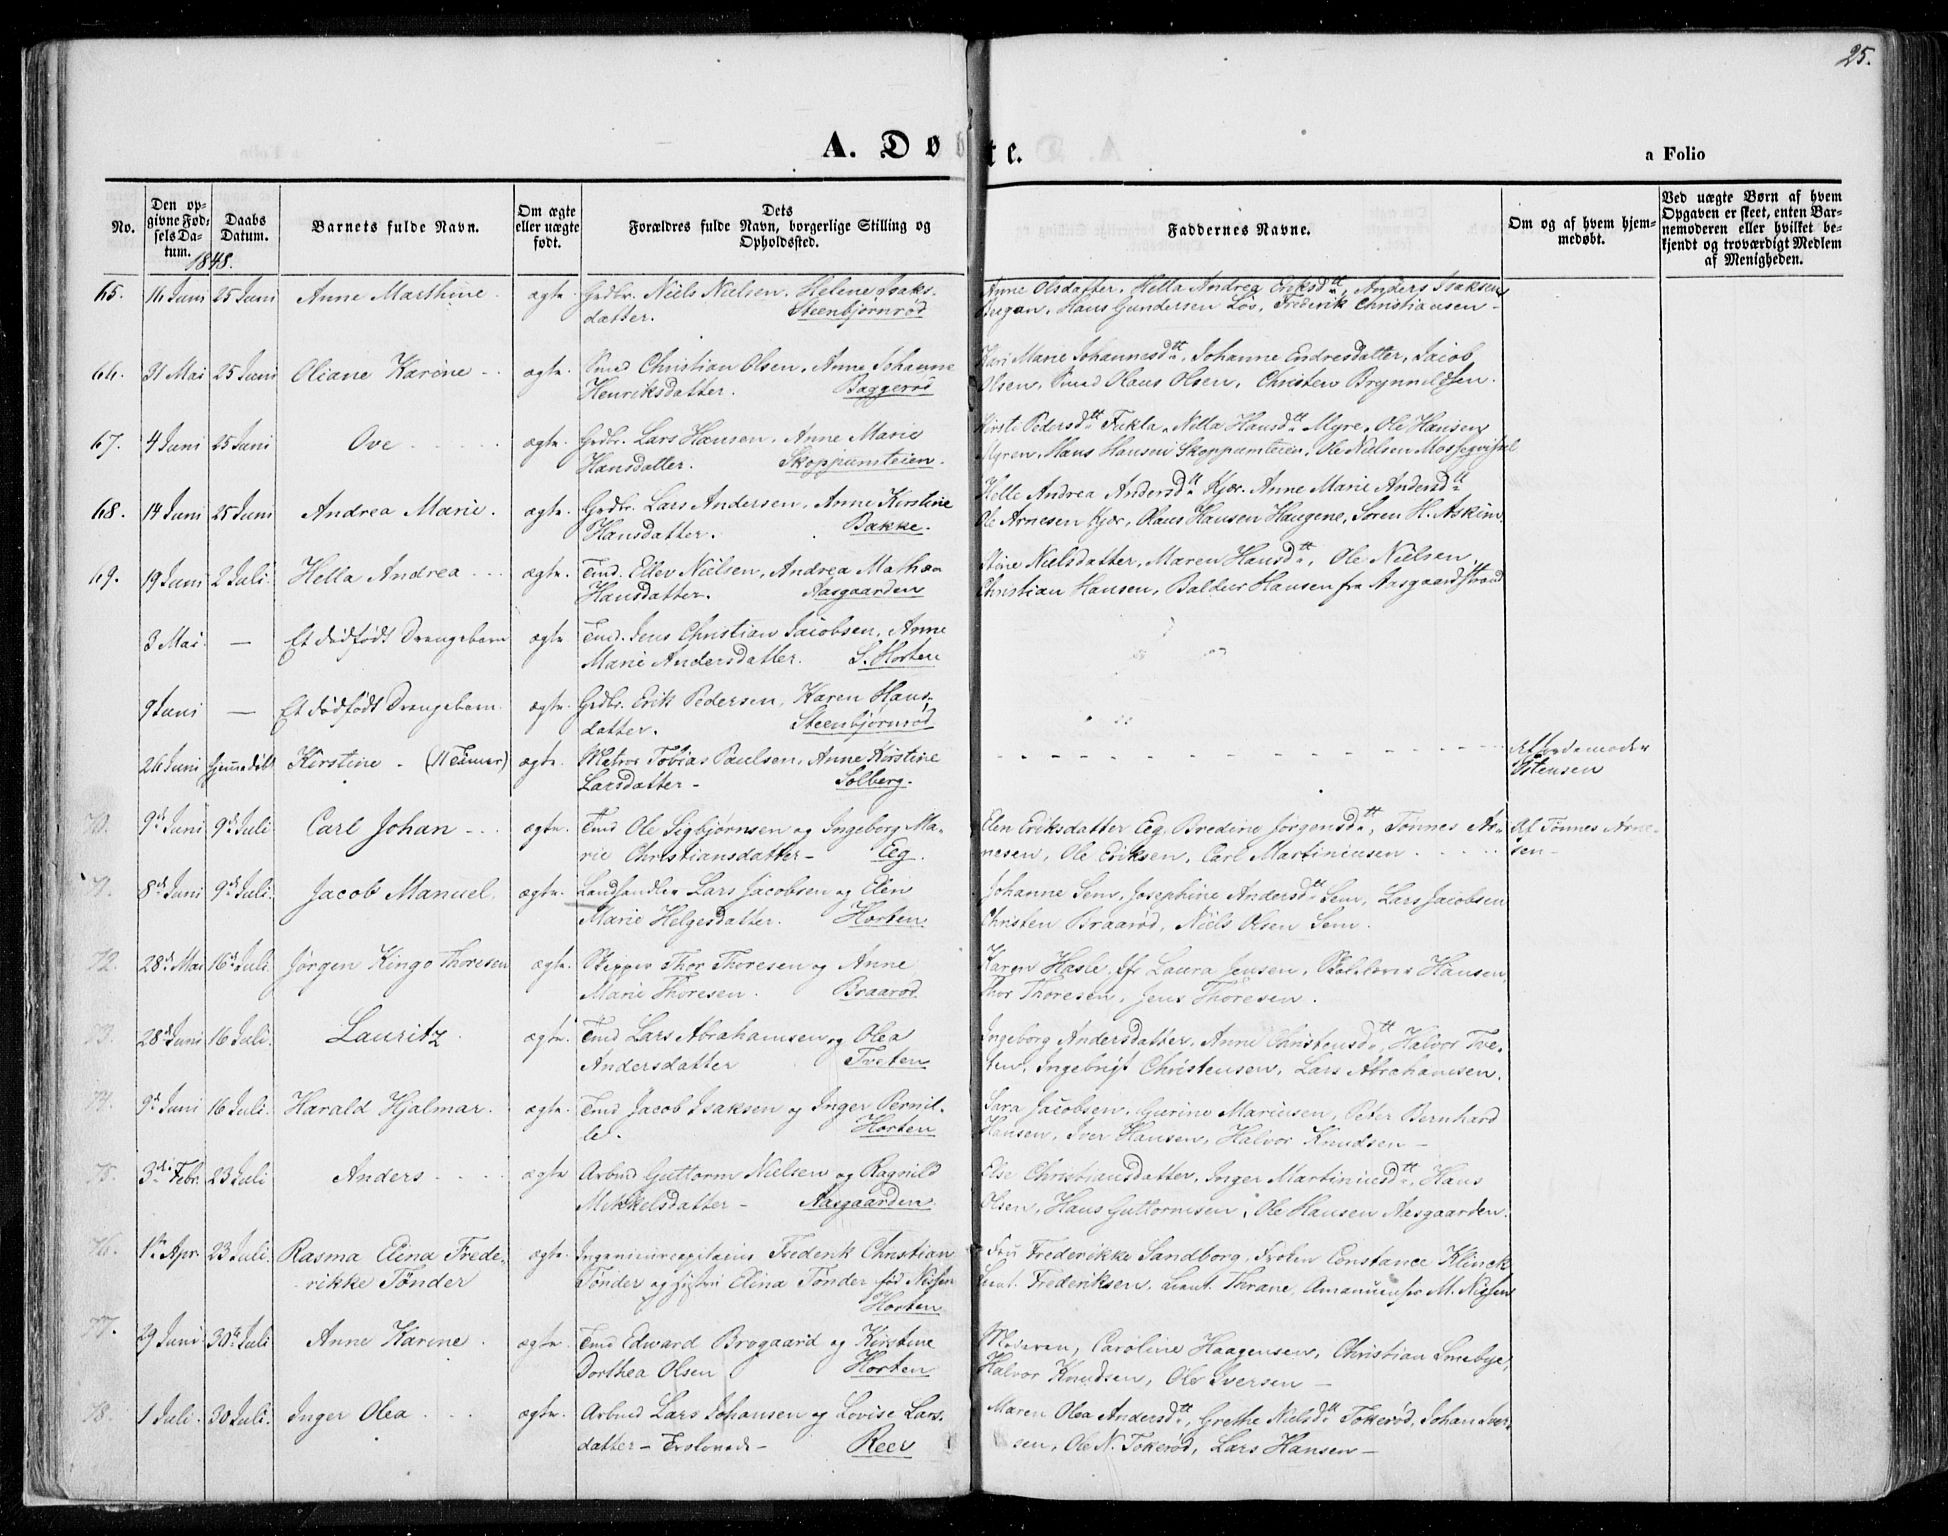 25.
A. Døbte.
a Folio
No.
Den opgivne Fødselsdatum.
Daabs Datum.
Barnets fulde Navn.
Om ægte eller uægte født.
Dets Forældres fulde Navn, borgerlige Stilling og Opholdssted.
Faddernes Navne.
Om og af hvem hjemmedøbt.
Ved uægte Børn af hvem Opgaven er skeet, enten Barnemoderen eller hvilket bekjendt og troværdigt Medlem af Menigheden.
1848.
65. 16 Juni 25 Juni Anne Marthine ægte. Grdbr. Niels Nielsen, Helene Isaks- Anne Olsdatter, Hella Andrea Eriksdtt, Anders Isaksen
datter. Steenbjørnrød Hans Gundersen Løv, Frederik Christiansen -
66. 31 Mai 25 Juni Oliane Karine ægte. Smed Christian Olsen, Anne Johanne Kari Marie Johannesdtt, Johanne Endresdatter, Jacob
Henriksdatter. Baggerød Olsen, Smed Olaus Olsen, Christen Brynnildsen.
67. 4 Juni 25 Juni Ove ægte. Grdbr. Lars Hansen, Anne Marie Kirsti Pedersdtt Fukla, Nilla Hansdtt Myre, Ole Hansen
Hansdatter. Skoppumteien. Myren, Hans Hansen Skoppumteien, Ole Nielsen
68. 14 Juni 25 Juni Andrea Marie. ægte. Grdbr. Lars Andersen, Anne Kirstine Helle Andrea Andersdtt Kjær, Anne Marie Andersdtt
Hansdatter. Bakke. Ole Arnesen Kjær, Olaus Hansen Haugene, Søren H. Askim.
69. 19 Juni 2 Juli. Hella Andrea ægte. Tmd. Ellev Nielsen, Andrea Mathea Stine Nielsdatter, Maren Hansdtt, Ole Nielsen,
Hansdatter. Aasgaarden Christian Hansen, Balder Hansen fra Aasgaardstrand
3 Mai. — Et dødfødt Drengebarn ægte Tmd. Jens Christian Jacobsen, Anne
Marie Andersdatter. S. Horten
9 Juni — Et dødfødt Drengebarn ægte. Grdbr. Erik Pedersen, Karen Hans-
datter. Steenbjørnrød
26 Juni hjemmedøbt Kirstine - (11 Timer) ægte. Matros Tobias Paulsen, Anne Kirstine Af Jordemoder
Larsdatter - Solberg. Østensen
70. 9de Juni 9de Juli Carl Johan ægte. Tmd Ole Sigbjørnsen og Ingeborg Ma- Elen Eriksdatter Eeg, Bredine Jørgensdtt, Tønnes Ar- Af Tønnes Arne-
rie Christiansdatter - Eeg. nesen, Ole Eriksen, Carl Martiniusen sen -
71. 8de Juni 9de Juli. Jacob Manuel. ægte. Landhandler Lars Jacobsen og Elen Johanne Sem, Josephine Andersdtt Sem, Lars Jacobsen
Marie Helgesdatter. Horten. Christen Braarød, Niels Olsen Sem.
72. 28de Mai 16de Juli. Jørgen Kingo Thoresen ægte. Skipper Thor Thoresen og Anne Karen Hasle, Jfr Laura Jensen, Hansen,
Marie Thoresen. Braarød. Thor Thoresen, Jens Thoresen.
73. 28de Juni 16 Juli. Lauritz ægte. Tmd Lars Abrahamsen og Olea Ingeborg Andersdatter, Anne Christensdtt, Halvor Tve-
Andersdatter Tveten ten, Ingebrigt Christensen, Lars Abrahamsen.
74. 9de Juni 16 Juli. Harald Hjalmar. ægte. Tmd Jacob Isaksen og Inger Pernil- Sara Jacobsen, Gurine Mariusen, Peter Bernhard
le. Horten Hansen, Iver Hansen, Halvor Knudsen -
75. 3die Febr. 23 Juli Anders ægte Arbmd Guttorm Nielsen og Ragnild Else Christiansdatter, Inger Martiniusdtt, Hans
Mikkelsdatter - Aasgaarden Olsen, Hans Guttormsen, Ole Hansen Aasgaarden.
76. 1ste Apr. 23 Juli. Rasma Elina Frede- ægte. Ingenieurcapitaine Frederik Christian Fru Frederikke Sandborg, Frøken Constance Klinck
rikke Tønder Tønder og Hustru Elina Tønder fød Nissen Lieut. Frederiksen, Lieut. Thrane, Amanuensis M. Nissen
Horten
77. 29 Juni 30te Juli Anne Karine. ægte. Tmd Edvard Brogaard og Kirstine Moderen, Caroline Haagensen, Christian Smebye,
Dorthea Olsen Horten Halvor Knudsen, Ole Iversen -
78. 1 Juli. 30 Juli. Inger Olea ægte. Arbmd Lars Johansen og Lovise Lars- Maren Olea Andersdtt, Grethe Nielsdtt Tokerød, Johan Iver-
datter - Reer sen, Ole N. Tokerød, Lars Hansen -